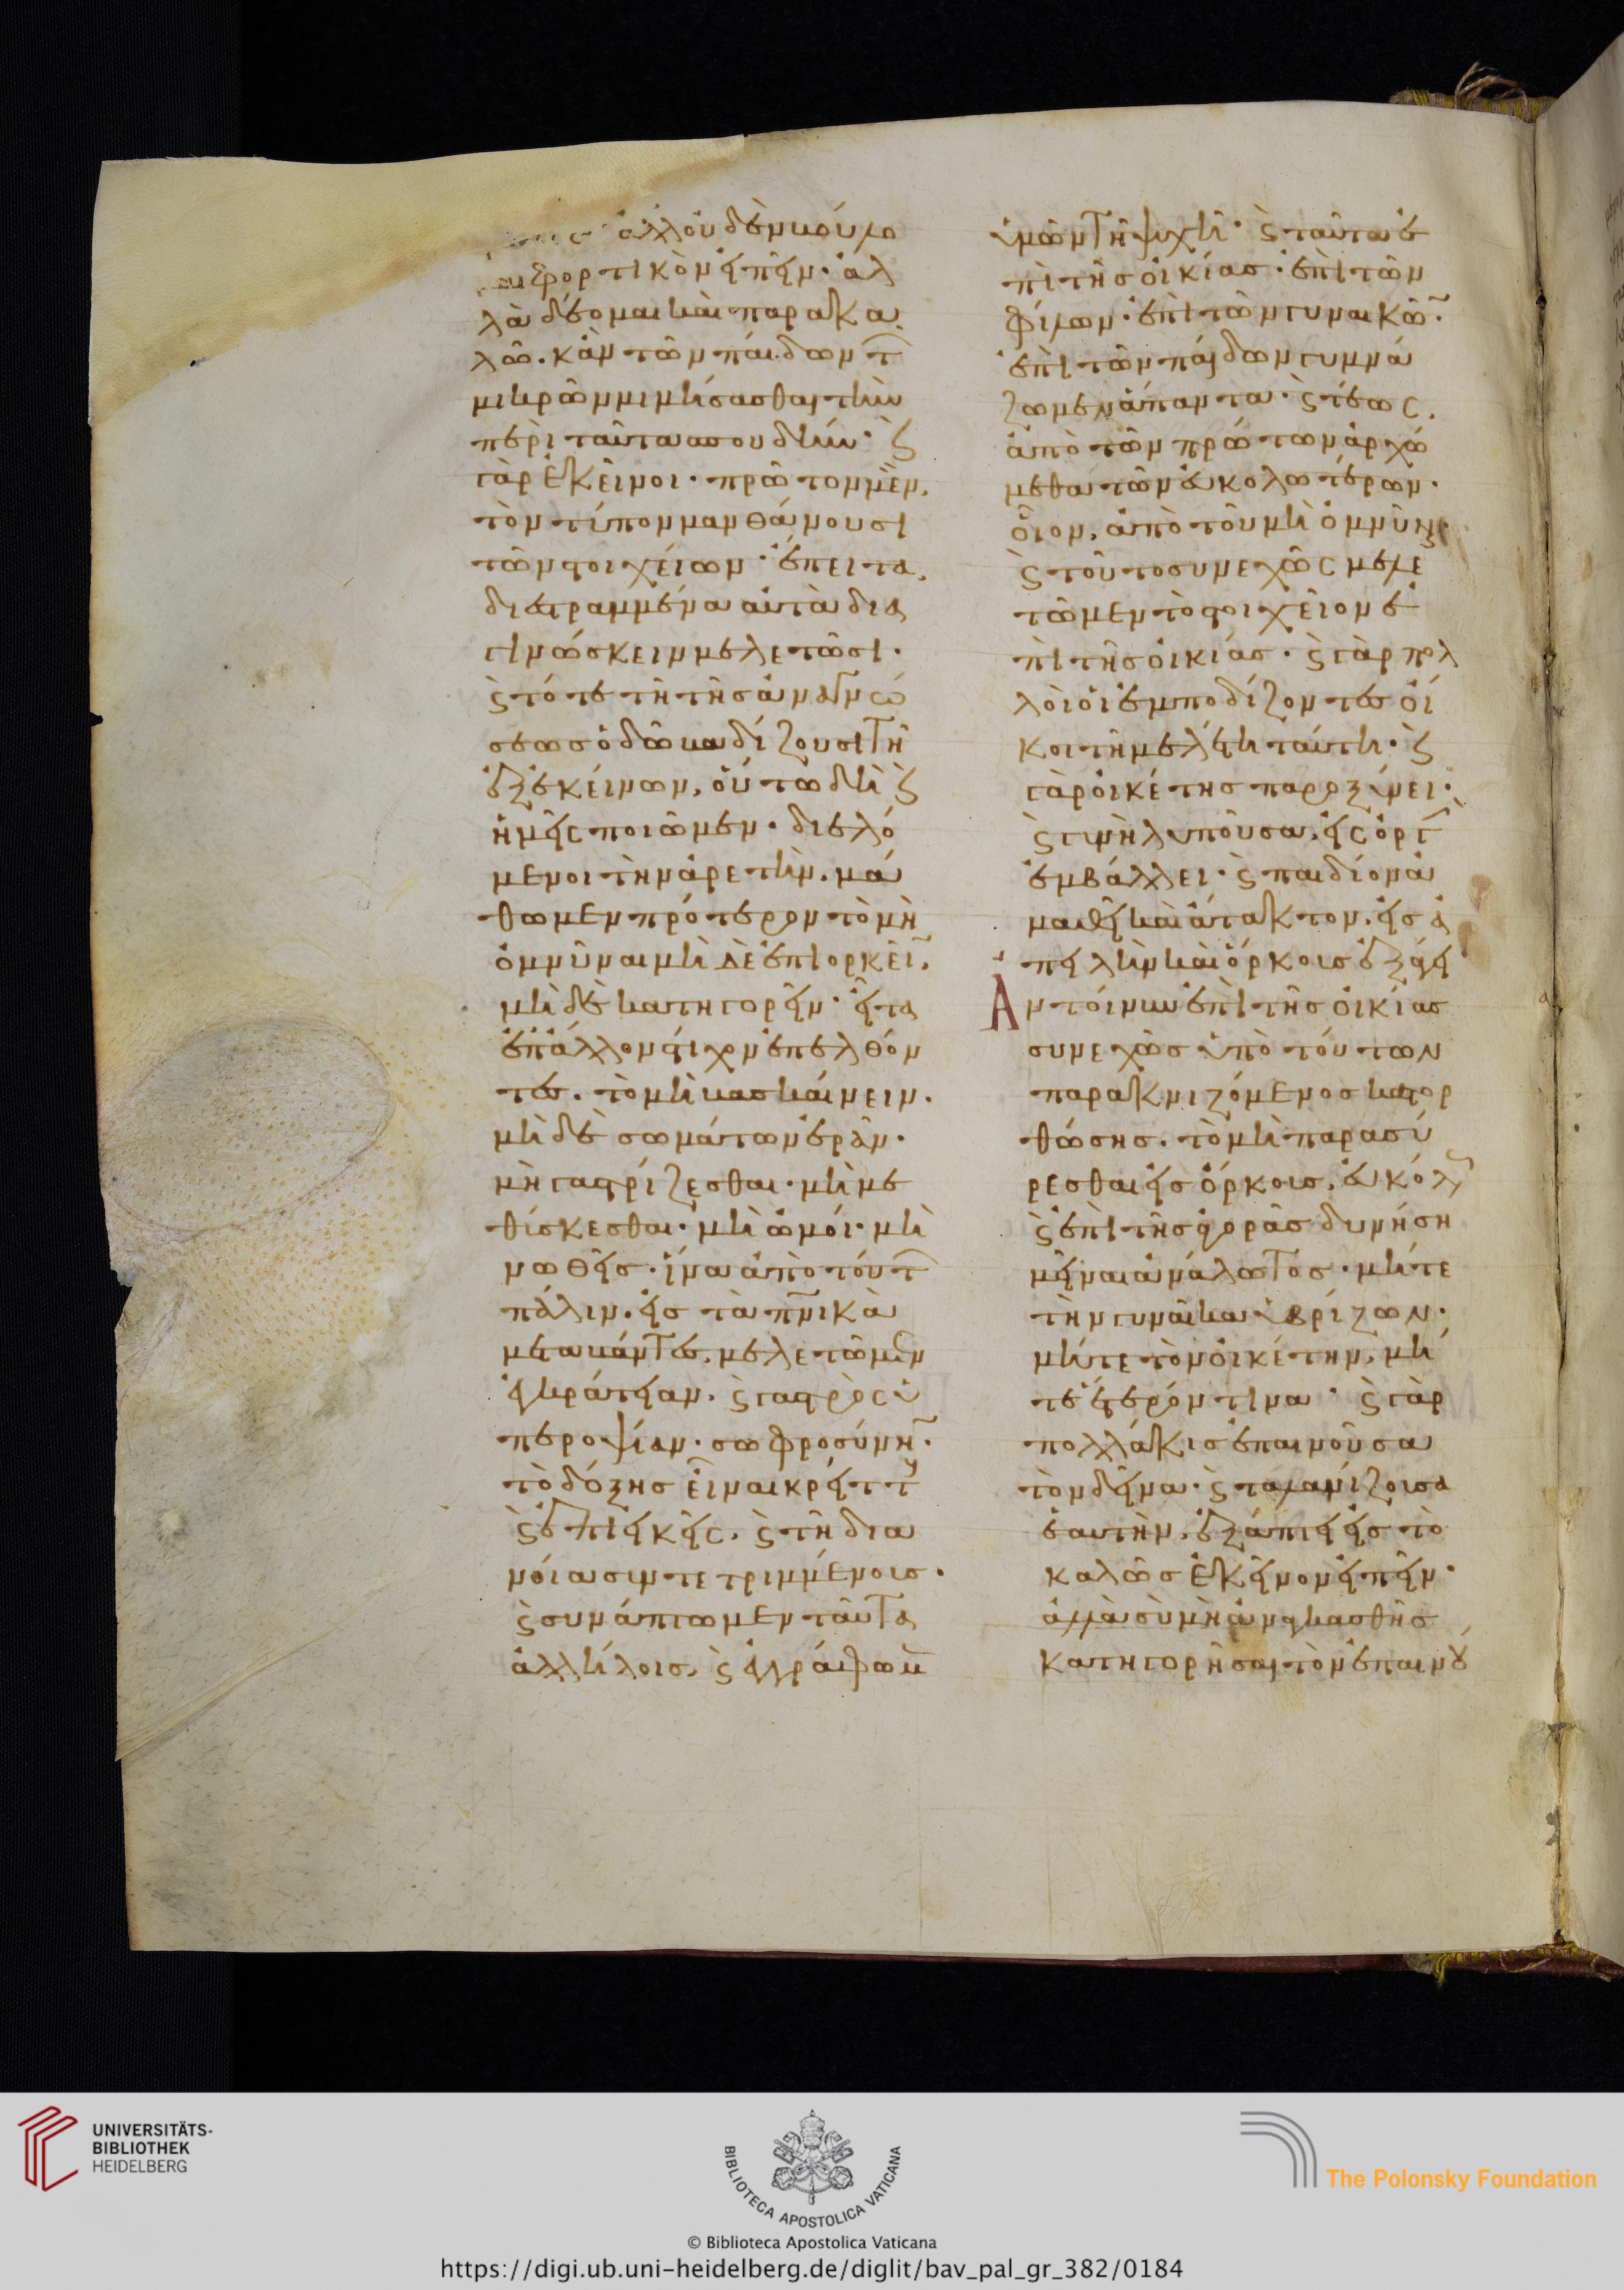 ἀλλ' οὐδὲν κοῦφο
φορτικὸν εἰπεῖν· ἀλ
λὰ δέομαι καὶ παρακα
λῶ. κἂν τῶν παίδων τ̅
μικρῶν μιμήσασθαι τὴν
περὶ ταῦτα σπουδήν· ϗ
γὰρ ἐκεῖνοι· πρῶτον μὲν,
τὸν τύπον μανθάνουσι
τῶν στοιχείων· ἔπειτα,
διεστραμμένα αὐτὰ δια
γινώσκειν μελετῶσι·
ϗ τότε τῇ τῆς ἀναγνώ
σεως ὁδῷ βαδίζουσι τῇ
ἐξ ἐκείνων, οὕτω δὴ ϗ
ἡμεῖς ποιῶμεν· διελό
μενοι τὴν ἀρετὴν, μά
θωμεν πρότερον τὸ μὴ
ὀμνύναι μὴ δὲ ἐπιορκεῖ̅,
μὴ δὲ κατηγορεῖν· εἶτα
ἐπ' ἄλλον στίχον ἐπελθόν
τες. τὸ μὴ βασκαίνειν.
μὴ δὲ σωμάτων ἐρᾶν.
μὴ γαστρίζεσθαι· μὴ με
θύσκεσθαι· μὴ ὠμοί· μὴ
νωθεῖς· ἵνα ἀπὸ τούτ̅
πάλιν. εἰς τὰ πν̅ικὰ
μεταβάντες, μελετῶμεν
ἐγκράτειαν, ϗ γαστρὸς ὑ
περοψίαν· σωφροσύνη̅·
τὸ δόξης εἶναι κρείττ
ϗ ἐπιεικεῖς, ϗ τῇ δια
νοίᾳ συντετριμμένοις·
ϗ συνάπτωμεν ταῦτα
ἀλλήλοις, ϗ ἐγγράφωμ̅
ὑμῶν τῇ ψυχῇ· ϗ ταῦτα ἐ
πὶ τῆς οἰκίας· ἐπὶ τῶν
φίλων· ἐπὶ τῶν γυναικῶ̅·
ἐπὶ τῶν παίδων γυμνά
ζωμεν ἅπαντα· ϗ τέως,
ἀπὸ τῶν πρώτων ἀρχώ
μεθα τῶν εὐκολωτέρων·
οἷον, ἀπὸ τοῦ μὴ ὀμνύναι·
ϗ τοῦτο συνεχῶς μελε
τῶμεν τὸ στοιχεῖον ἐ
πὶ τῆς οἰκίας· ϗ γὰρ πολ
λοὶ οἱ ἐμποδίζοντες οἴ
κοι τῇ μελέτῃ ταύτῃ· ϗ
γὰρ οἰκέτης παροξύνει·
ϗ γυνὴ λυποῦσα, εἰς ὀργ̅
ἐμβάλλει· ϗ παιδίον ἀ
μαθεῖ καὶ ἄτακτον, εἰς ἀ
πειλὴν καὶ ὅρκους ἐξάγει·
Ἂν τοίνυν ἐπὶ τῆς οἰκίας
συνεχῶς ὑπὸ τούτων
παρακνιζόμενος κατορ
θώσῃς. τὸ μὴ παρασύ
ρεσθαι εἰς ὅρκους, εὐκόλ
ϗ ἐπὶ τῆς ἀγορᾶς δυνήσῃ
μεῖναι ἀνάλωτος· μήτε
τὴν γυναῖκα ὑβρίζων·
μήτε τὸν οἰκέτην, μή
τε ἕτερόν τινα· ϗ γὰρ
πολλάκις ἐπαινοῦσα
τὸν δεῖνα· ϗ ταλανίζουσα
ἑαυτὴν, ἐξάπτει εἰς τὸ
καλῶς ἐκεῖνον εἰπεῖν·
ἀλλὰ σὺ μὴ ἀναγκασθῇς
κατηγορῆσαι τὸν ἐπαινού
UNIVERSITÄTS-
BIBLIOTHEK
HEIDELBERG
BIBLIOTECA APOSTOLICA VATICANA
© Biblioteca Apostolica Vaticana
The Polonsky Foundation
https://digi.ub.uni-heidelberg.de/diglit/bav_pal_gr_382/0184